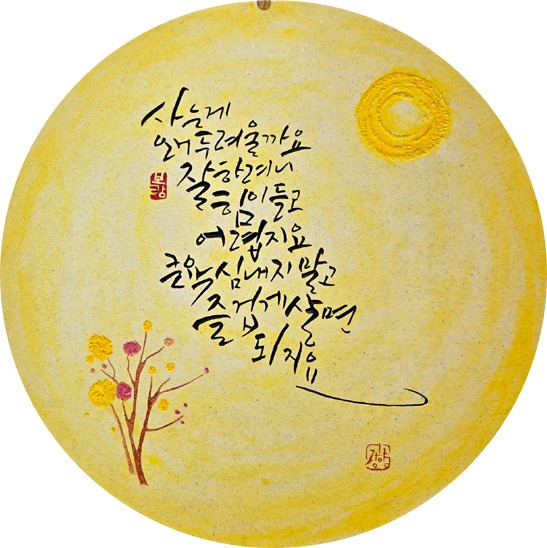 사는게
왜 두려울까요
잘하려니
힘이들고
어렵지요
큰욕심내지 말고
즐겁게 살면
되지요